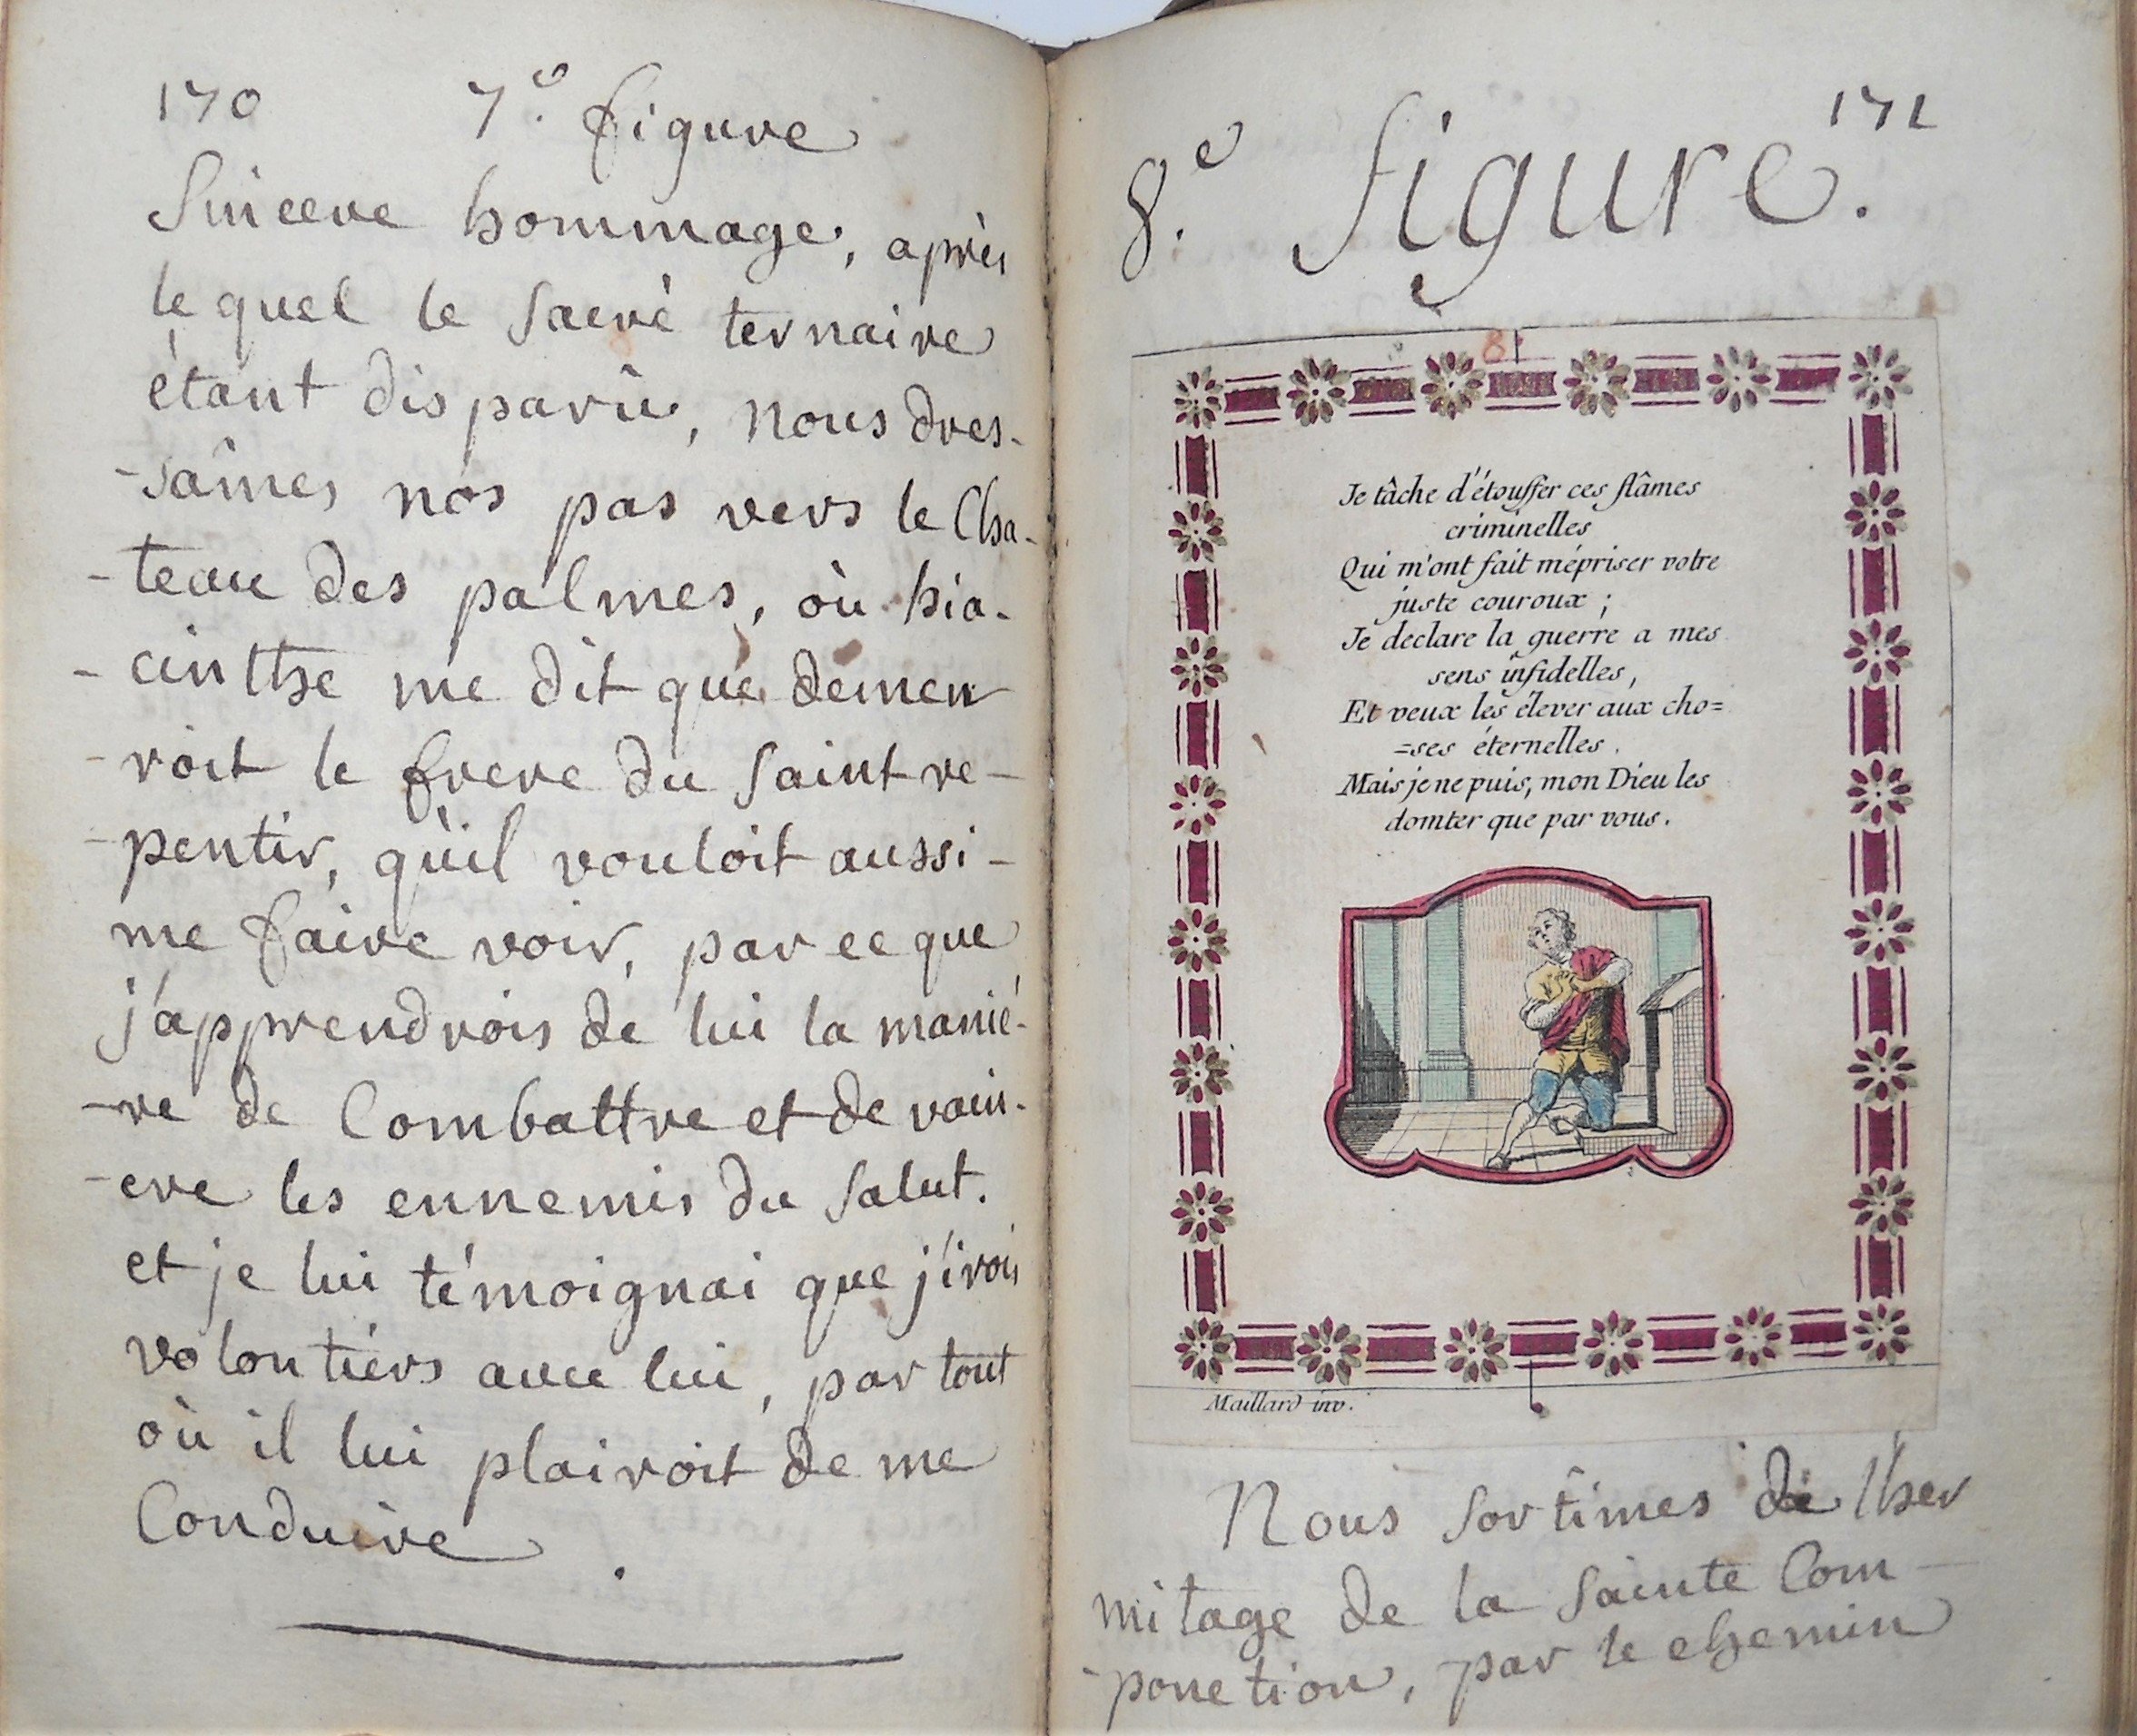 170 7.e figure
Sincere hommage, après
le quel le sacré ternaire
étant disparû, nous dres-
-sâmes nos pas vers le Cha-
-teau des palmes, où hia-
-cinthe me dit que demeu
-roit le frere du saint re-
-pentir, qu'il vouloit aussi-
me faire voir, par ce que
j'apprendrois de lui la manié-
-re de Combattre et de vain-
-cre les ennemis du salut.
et je lui témoignai que j'irois
volontiers avec lui, par tout
où il lui plairoit de me
Conduire.
171
8.e figure.
8
Je tâche d'étouffer ces flâmes
criminelles
Qui m'ont fait mépriser votre
juste couroux ;
Je declare la guerre a mes
sens infidelles,
Et veux les élever aux cho=
=ses éternelles.
Mais je ne puis, mon Dieu les
domter que par vous.
Maillard inv.
Nous sortîmes de l'her
mitage de la sainte Com-
-ponction, par le chemin